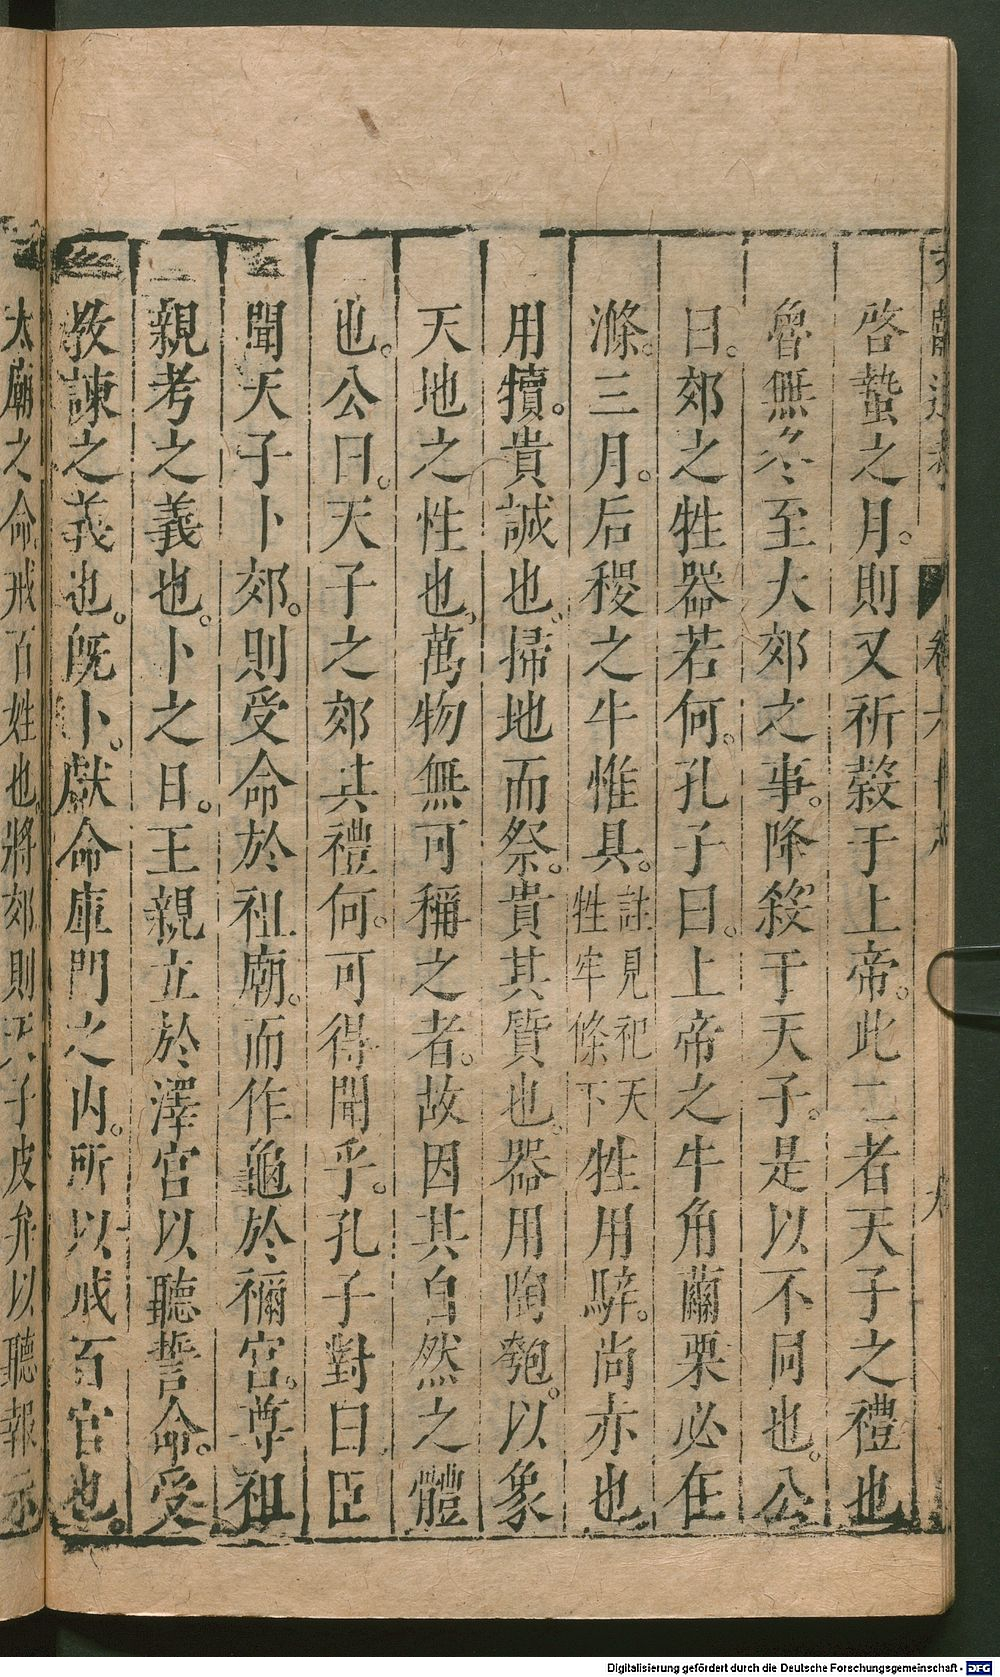 啓蟄之月。則又祈穀于上帝。此二者天子之禮也
魯無冬至大郊之事。降殺于天子。是以不同也。公
曰。郊之牲器若何。孔子曰。上帝之牛角繭栗必在
滌。三月。后稷之牛惟具。註見祀天牲牢條下牲用騂。尚赤也
用犢。貴誠也。掃地而祭。貴其質也。器用陶匏。以象
天地之性也。萬物無可稱之者。故因其自然之體
也。公曰。天子之郊其禮何。可得聞乎。孔子對曰臣
聞天子卜郊。則受命於祖廟。而作龜於禰宮。尊祖
親考之義也。卜之日。王親立於澤宮以聽誓命。受
教諫之義也。旣卜。獻命庫門之內。所以戒百官也。
太廟之命戒百姓也。將郊則天子皮弁以聽報示
Digitalisierung gefördert durch die Deutsche Forschungsgemeinschaft - DFG